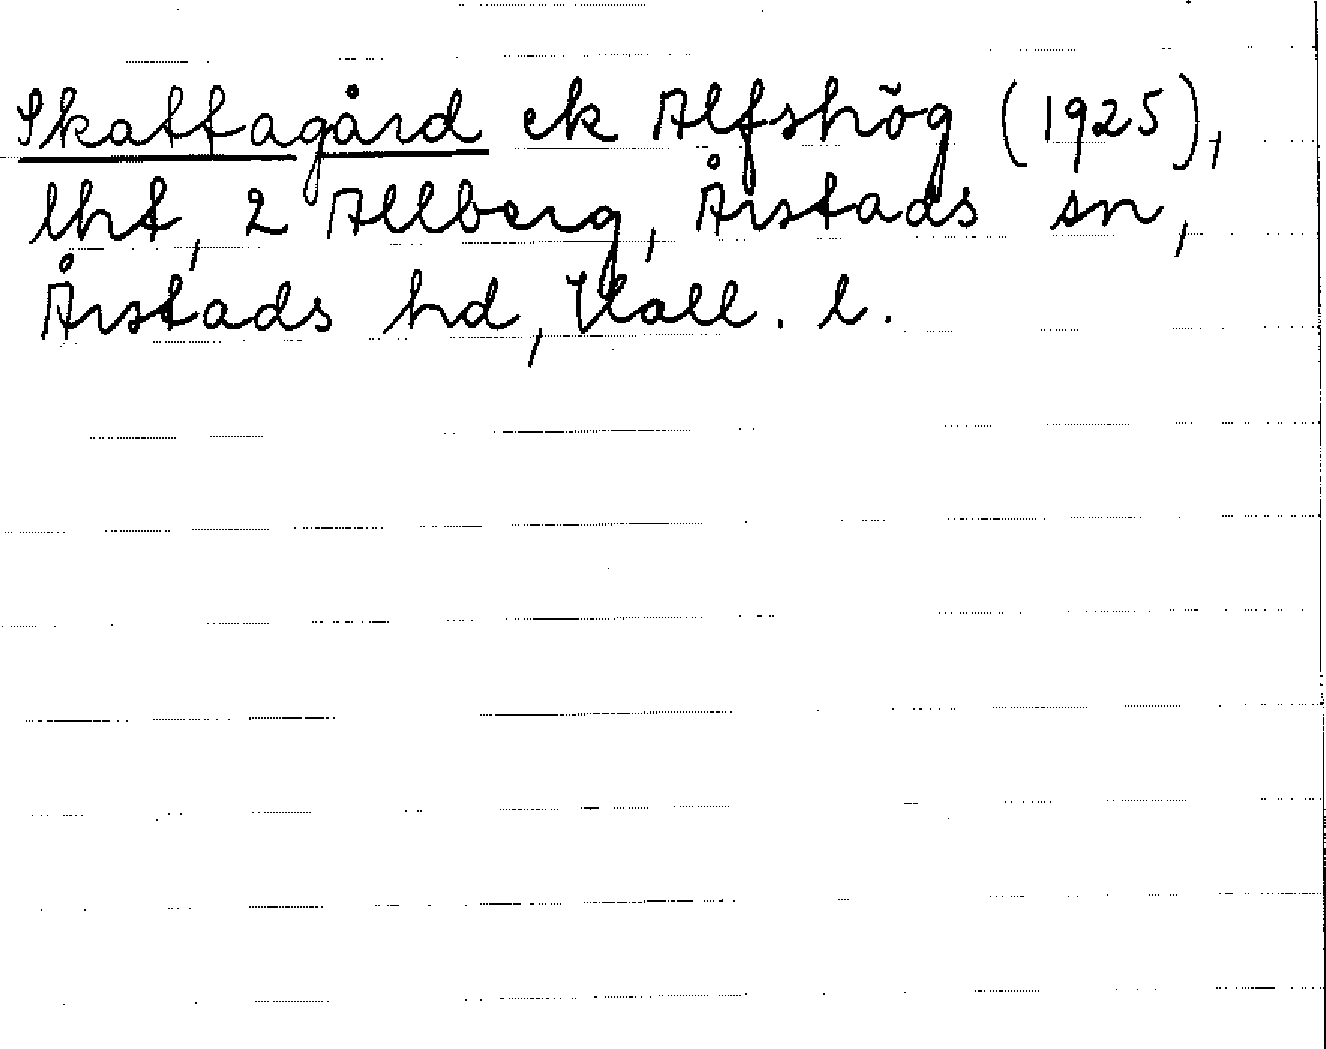 Skattagård ek Alfshög (1925),
lht, 2 Allberg, Årstads sn,
Årstads hd, Hall. l.